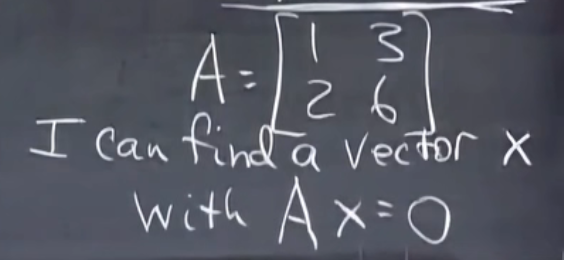 A = [1 3
2 6]
I can find a vector x
with Ax=0